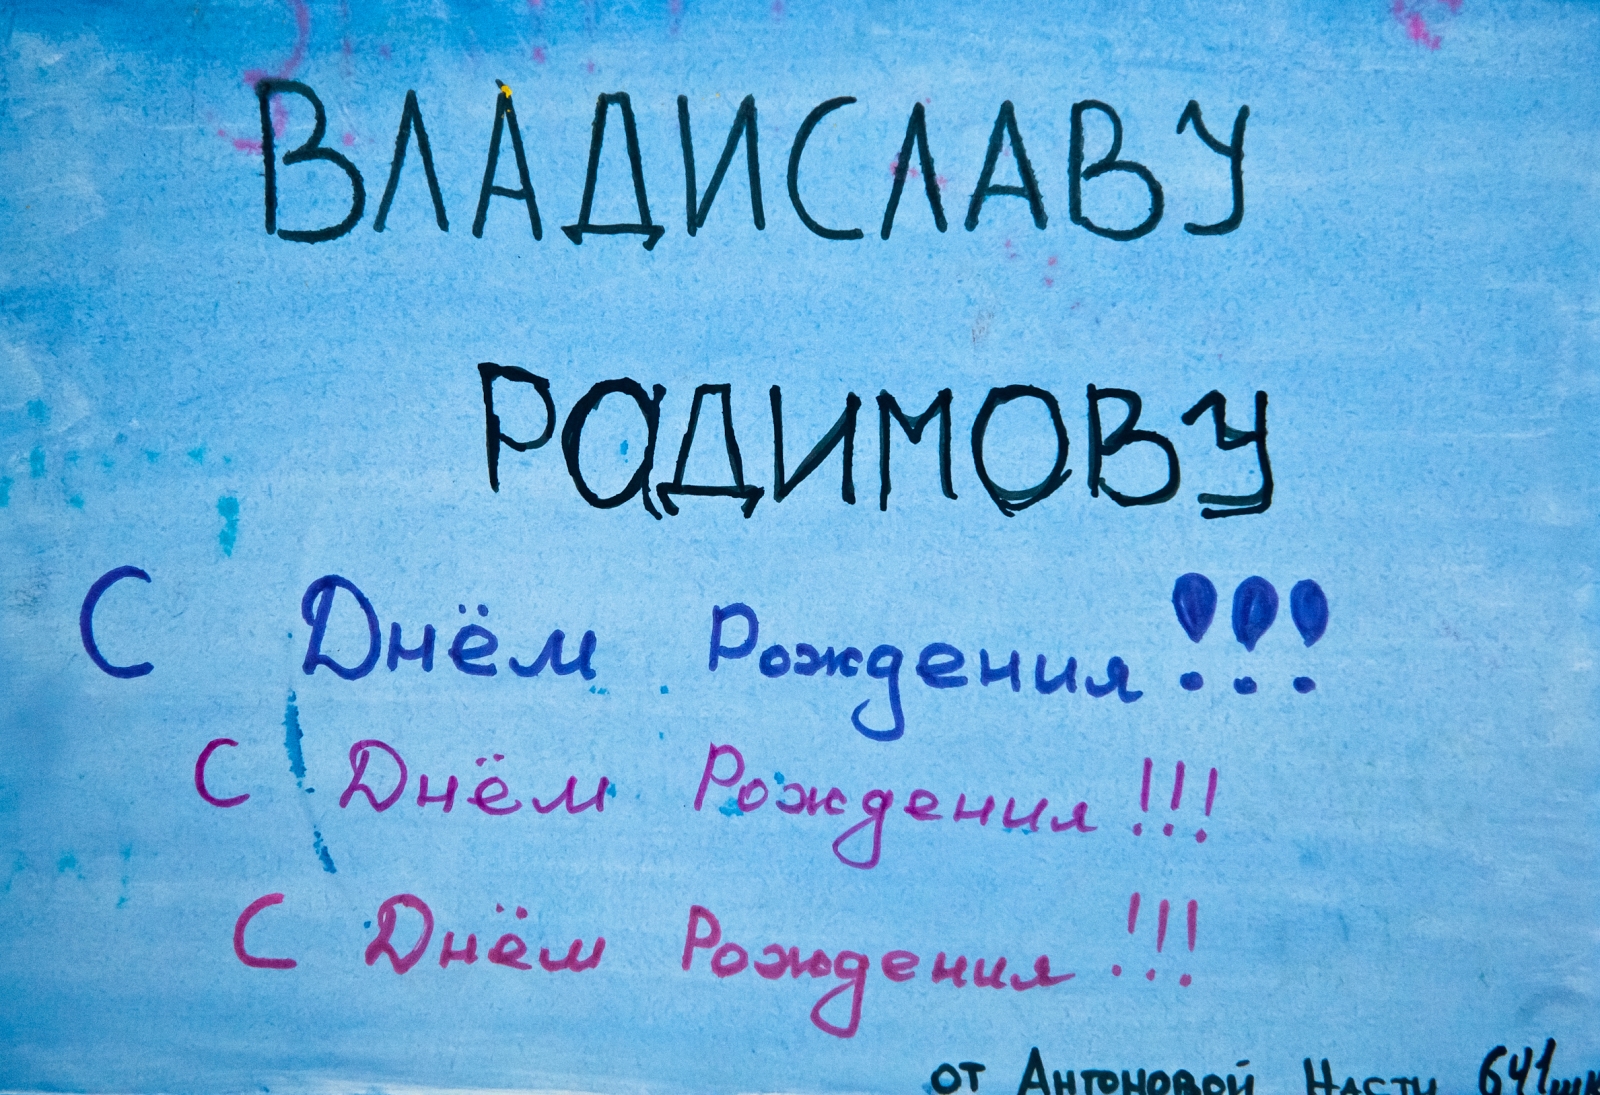 ВЛАДИСЛАВУ
РАДИМОВУ
С Днём Рождения!!!
С Днём Рождения!!!
С Днём Рождения!!!
от Антоновой Насти 641шк